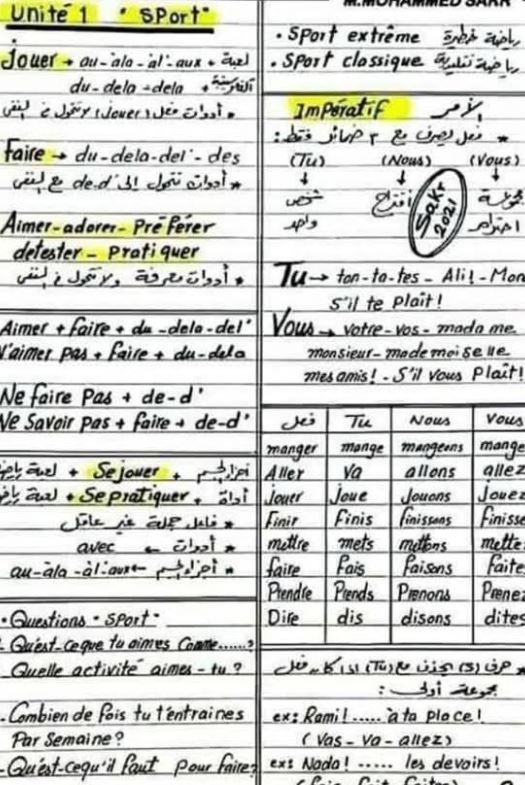 Unité 1 "SPort"
Jouer → au-àla-àl'-aux + لعبة
du-dela-dela +
* أدوات فعل (Jouer) لا تتحول في النفى
Faire → du-dela-del'-des
* أدوات تتحول إلى de.d' مع النفى
Aimer-adorer-Préférer
détester-Pratiquer
* أدوات معرفة ولا تتحول في النفى
Aimer + faire + du-dela-del'
N'aimer pas + faire + du-dela
Ne faire Pas + de-d'
Ne Savoir pas + faire + de-d'
أجزاء الجسم + Se jouer + لعبة
أداة + Se pratiquer + لعبة
* فاعل جملة غير عاقل
* أدوات ← avec
* أجزاء الجسم ← au-àla-àl'-aux
• Questions "SPort"
- Qu'est-ce que tu aimes Comme.....?
Quelle activité aimes-tu?
- Combien de fois tu t'entraines
Par Semaine?
- Qu'est-cequ'il faut Pour faire?
M.MOHAMMED SAKR
• SPort extrême رياضة خطرة
• SPort classique رياضة تقليدية
Impératif الأمر
* فعل يصرف مع ٣ ضمائر فقط:
(Tu) (Nous) (Vous)
↓ ↓ ↓
شخص اقتراح مجموعة
واحد احترام
Sakr 2021
Tu → ton-ta-tes-Ali!-Mon
S'il te Plaît!
Vous → votre-vos-madame
monsieur-mademoiselle
mes amis!-S'il vous Plaît!
فعل Tu Nous Vous
manger mange mangeons mange
Aller va allons allez
Jouer Joue Jouons Jouez
Finir Finis finissons finisse
mettre mets mettons mette
faire Fais Faisons faite
Prendre Prends Prenons Prenez
Dire dis disons dites
* حرف (s) يحذف مع (Tu) إذا كان فعل
مجموعة أولى:
ex: Rami!..... à ta place!
(Vas-Va-allez)
ex: Nada!..... les devoirs!